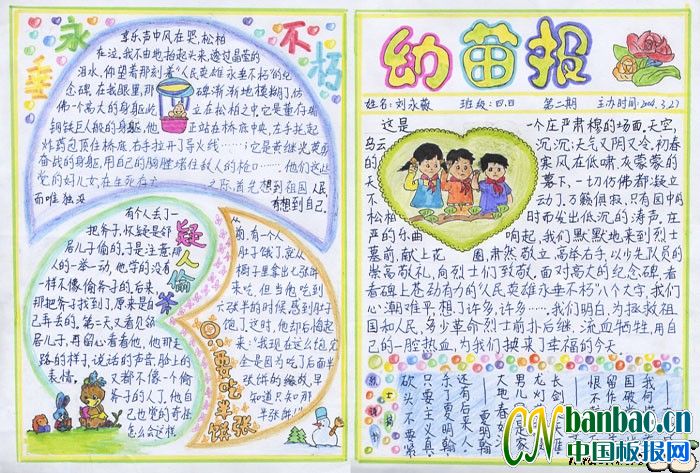 永垂不朽
哀乐声中风在哭,松柏
在泣,我不由地抬起头来,透过晶莹的
泪水,仰望着那刻着“人民英雄永垂不朽”的纪
念碑,在我眼里,那 碑渐渐地模糊了,仿
佛一个高大的身躯屹 立在松柏之中,它是董存瑞
钢铁巨人般的身躯,他 正站在桥底中央,左手托起
炸药包顶住桥底,右手拉开了导火线……;它是黄继光英勇
奋战的身躯,用自己的胸膛堵住敌人的枪口……,他们这些
党的好儿女,在生死存亡 之际,首先想到祖国人民
而唯独没 有想到自己。
疑人偷斧
有个人丢了一
把斧子,怀疑是邻
居儿子偷的,于是注意那
人的一举一动,他穿的没有
一样不像偷斧子的,后来,
那把斧子找到了,原来是自
己弄丢的,第二天又看见邻
居儿子,再留心看看他,他那走
路的样子,说话的声音,脸上的
表情,又都不像一个偷
斧子的人了,他自
己也觉的奇怪
怎么会这样。
只要吃半张饼
从
前,有一个人
肚子饿了,就从
橱子里拿出七张饼
来吃,但当他吃到
六张半的时候,感到肚子
饱了,这时,他却后悔起
来:“我现在这么饱完
全是因为吃了后面半
张饼的缘故,早
知道只如那
半张饼!”
幼苗报
姓名:刘永薇 班级:四.四 第二期 主办时间:2004.3.27
这是 一个庄严肃穆的场面,天空,
乌云 沉沉;天气又阴又冷,初春
的 寒风在低啸,灰蒙蒙的
天 幕下,一切仿佛都凝立
不 动了,万籁俱寂,只有园中的
松柏 时而发出低沉的涛声,在
严的乐曲 响起,我们默默地来到烈士
墓前,献上花 圈,肃然敬立,高举右手,以少先队员的
崇高敬礼,向烈士们致敬,面对高大的纪念碑,看
着碑上苍劲有力的“人民英雄永垂不朽”八个大字,我们
心潮难平,想了许多,许多……,我们明白,为拯救祖
国和人民,多少革命烈士前扑后继,流血牺牲,用自
己的一腔热血,为我们换来了幸福的今天。
砍头不要紧
只要主义真
杀了夏明翰
还有后来人
夏明翰
CN banbao.cn
中国板报网